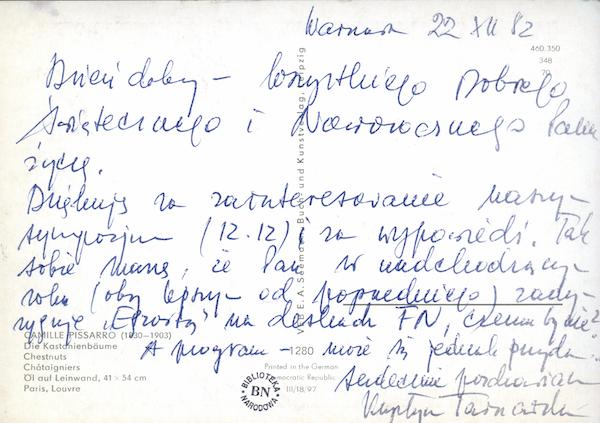 Warszawa 22 XII 82
460.350
348
Dzień dobry – Wszystkiego Dobrego
Świątecznego i Noworocznego Panu
życzę.
Dziękuję za zainteresowanie naszym
sympozjum (12.12) i za wypowiedź. Tak
sobie marzę, że Pan w nadchodzącym
roku (oby lepszym od poprzedniego)
"Egzorta" na deskach FN, czemu by nie?
A program – może się jednak przyda...
serdecznie pozdrawiam
Krystyna
VEB E.A. Seemann, Buch- und Kunstverlag, Leipzig
CAMILLE PISSARRO (1830–1903)
Die Kastanienbäume
Chestnuts
Châtaigniers
Öl auf Leinwand, 41 × 54 cm
Paris, Louvre
1280
Printed in the German
Democratic Republic
III/18/97
BIBLIOTEKA
BN
NARODOWA